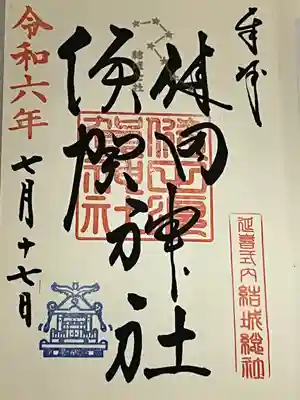 奉拝
延喜式内 結城總社
健田神社
須賀神社
健田須
賀神社
令和六年
七月十七日